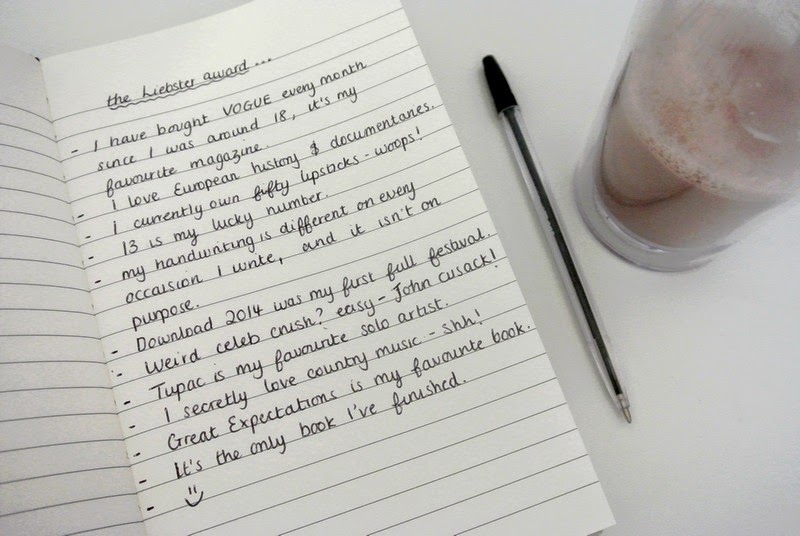 the Liebster award...
- I have bought VOGUE every month
since I was around 18, it's my
favourite magazine.
- I love European history & documentaries.
- I currently own fifty lipsticks - woops!
- 13 is my lucky number.
- my handwriting is different on every
occaision I write, and it isn't on
purpose.
- Download 2014 was my first full festival.
- Weird celeb crush? easy - John Cusack!
- Tupac is my favourite solo artist.
- I secretly love country music - shh!
- Great Expectations is my favourite book.
- It's the only book I've finished.
- :)